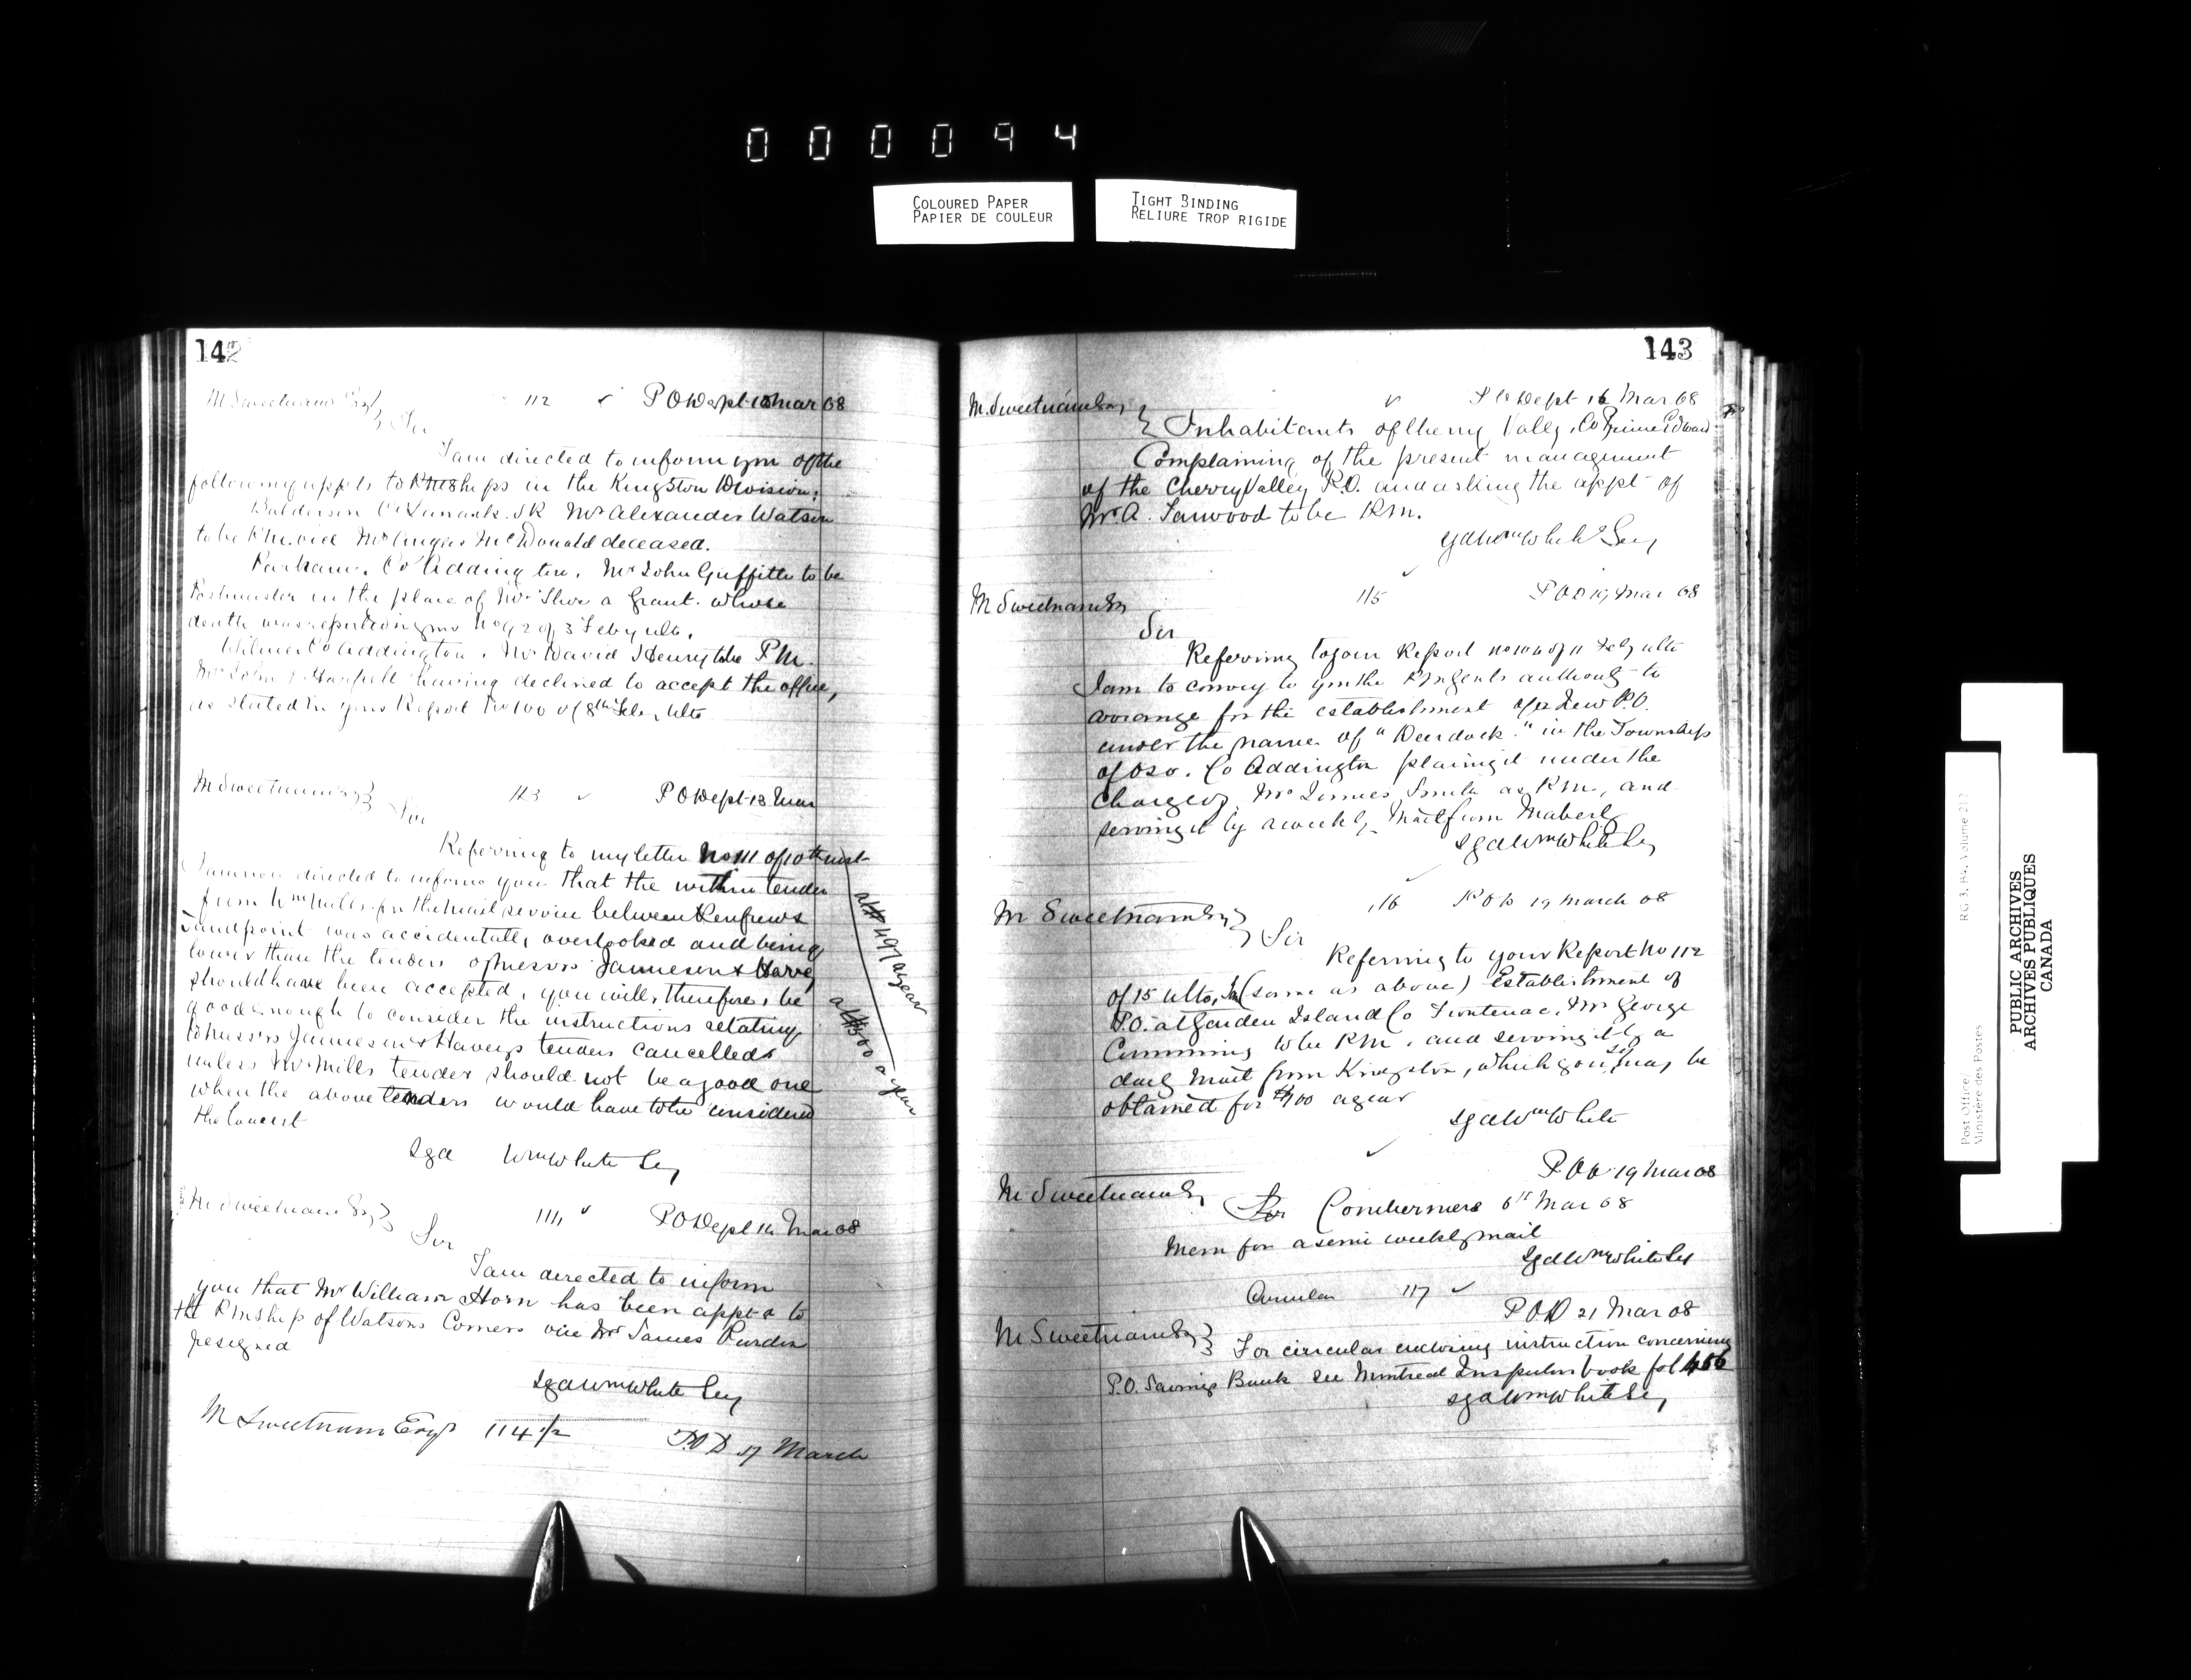 000094
COLOURED PAPER
PAPIER DE COULEUR
TIGHT BINDING
RELIURE TROP RIGIDE
142
M Sweetnam Esq 112 ✓ P O Dept 13 Mar 68
Sir
I am directed to inform you of the
following appts to PMships in the Kingston Division,
Balderson Co Lanark. SR Mr Alexander Watson
to be P.M. vice Mr Angus McDonald deceased.
Parham. Co Addington, Mr John Griffith to be
Postmaster in the place of Mr Thos a Grant. whose
death was reported in your No 92 of 3 Feby ulto.
Wilmer Co Addington. Mr David Henry to be P.M.
Mr John having declined to accept the office,
as stated in your Report No 100 of 8th Feb. Ulto
M Sweetnam Esq 113 ✓ P O Dept 13 Mar
Sir
Referring to my letter No 111 of 10th inst
I am now directed to inform you that the within tender
from Wm Mills for the mail service between Renfrew &
Sandpoint was accidentally overlooked and being
lower than the tenders of Messrs Jamieson & Havey
should have been accepted, you will, therefore, be
good enough to consider the instructions relating
to Messrs Jamieson & Haveys tenders cancelled
unless Mr Mills tender should not be a good one
when the above tenders would have to be considered
the lowest
at $497 a year
at $500 a year
Sgd Wm White Secy
M Sweetnam Esq 114 ✓ P O Dept 16 Mar 68
Sir
I am directed to inform
you that Mr William Horn has been apptd to
the PMship of Watsons Corners vice Mr James Purdon
resigned
Sgd Wm White Secy
M Sweetnam Esqr 114 1/2 P.O D 17 March
143
M. Sweetnam Esq ✓ P O Dept 16 Mar 68
Inhabitants of Cherry Valley, Co Prince Edward
Complaining of the present management
of the Cherry Valley P.O. and asking the appt of
Mr A. to be P.M.
Sgd Wm White Secy
M Sweetnam Esq 115 P O D 19 Mar 68
Sir
Referring to your Report no 104 of 11 Feby ulto
I am to convey to you the PMGenls authority to
arrange for the establishment of a New P.O.
under the name of "Deerdock" in the Township
of Oso. Co Addington placing it under the
charge of Mr James Smith as P.M., and
serving it by a weekly Mail from Maberly
Sgd Wm White Secy
M Sweetnam Esq 116 P O D 19 March 68
Sir
Referring to your Report No 112
of 15 Ulto, (same as above) Establishment of
P.O. at Garden Island Co Frontenac, Mr George
Cumming to be P.M. and serving it by a
daily Mail from Kingston, which you say may be
obtained for $100 a year
Sgd Wm White
P.O D 19 Mar 68
M Sweetnam Esq Combermere 6th Mar 68
Mem for a semi weekly mail
Sgd Wm White Secy
Circular 117 ✓
P O D 21 Mar 68
M Sweetnam Esq For circular enclosing instruction concerning
P.O. Savings Bank see Montreal Inspectors book fol 456
Sgd Wm White Secy
Post Office/ RG 3, B4, Volume 217
Ministère des Postes
PUBLIC ARCHIVES
ARCHIVES PUBLIQUES
CANADA